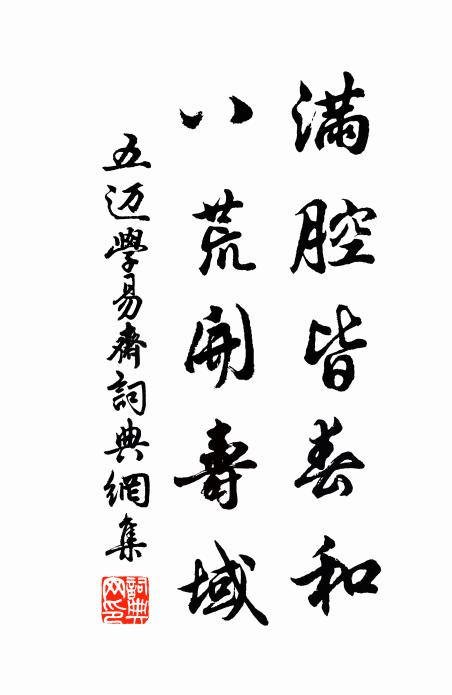 滿腔皆春和
八荒開壽域
五迈學易齋詞典網集
詞典